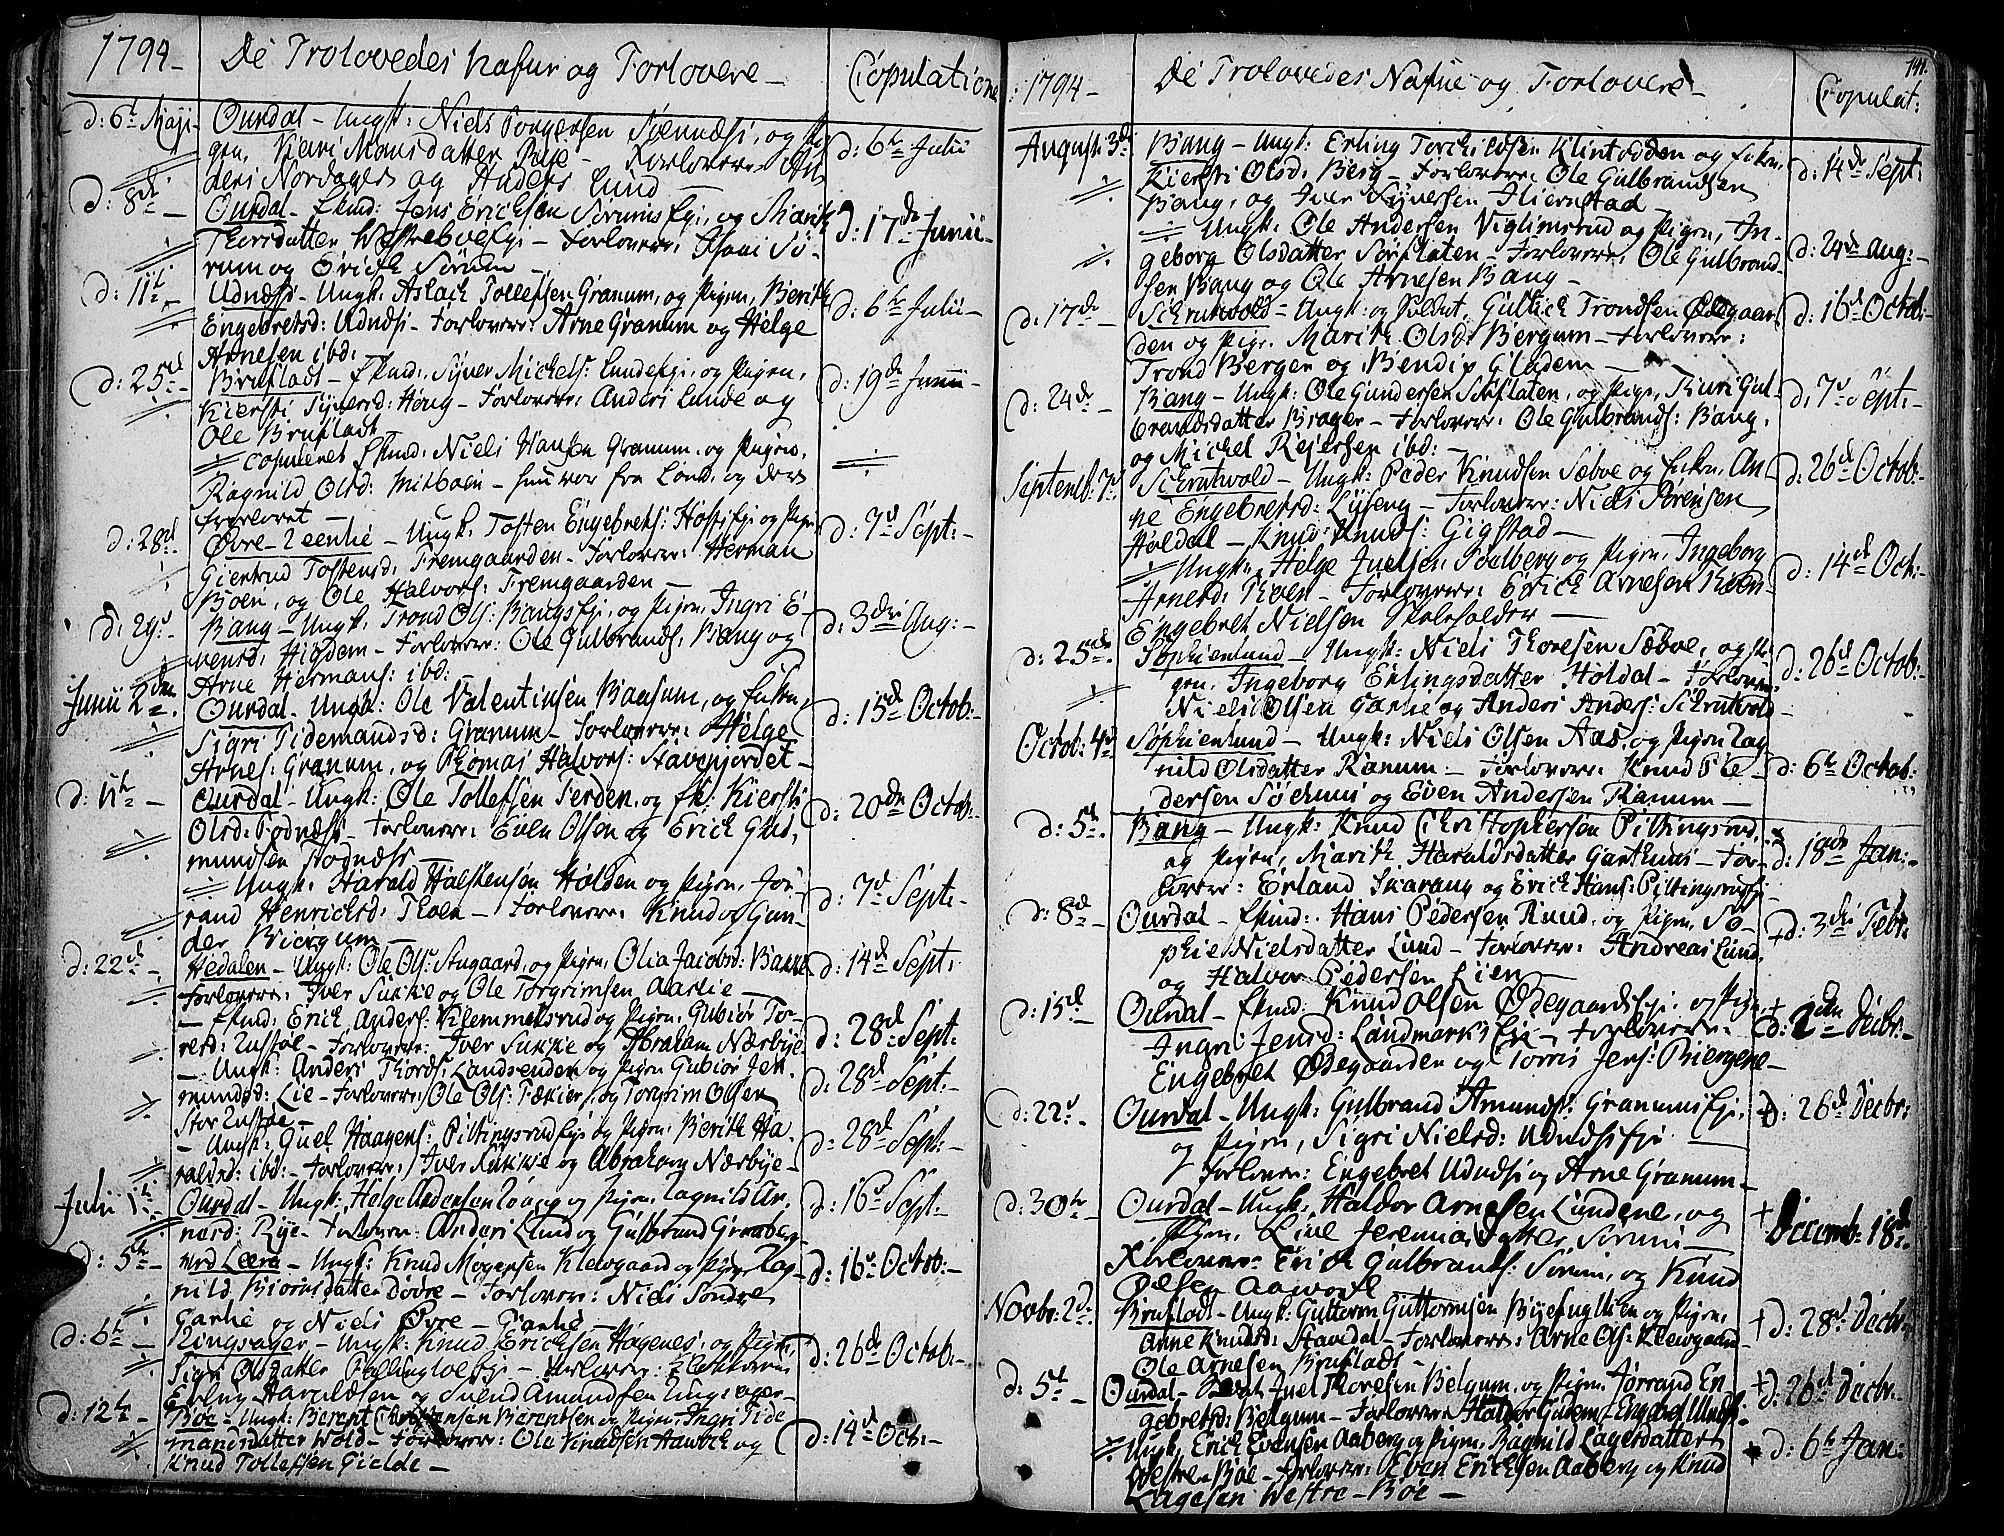 1794 - De Trolovedes Nafne og Forlovere - Copulatione
d: 6t Maji - Ourdal - Ungk: Niels Torgersen og Pi
gen, Kari Monsdatter Rye - Forlovere: An
ders Nordager og Anders Lund -
d: 6te Julii
d: 8de - Ourdal - Ekmd: Jens Erichsen Sørums Eji, og Marith
Thorsdatter Westrebøe Eji - Forlovere: Sø-
rum og Erich Sørum -
d: 17de Junii -
d: 11te - Udnæss - Ungk: Aslach Tollefsen Granum, og Pigen, Berith
Engebretsd: Udnæss - Forlovere: Arne Granum og Helge
Arnesen ibd:
d: 6te Julii -
d: 25de - Brufladt - Ekmd: Syver Michels: Lunde Eji, og Pigen,
Kiersti Syversd: Houg - Forlovere: Anders Lunde og
Ole Brufladt
d: 19de Junii -
copuleret Ekmd: Niels Hansen Granum, og Pigen,
Ragnild Olsd: Midbøen - hun var fra Land, og der
trolovet -
d: 28de - Øvre-Leenhe - Ungk: Tosten Engebrets: og Pigen
Giertrud Tostensd: Fremgaarden - Forlovere: Herman
Boen, og Ole Halvors: Fremgaarden -
d: 7de Sept: -
d: 29: - Bang - Ungk: Trond Ols: Bangs Eji, og Pigen, Ingri E-
vensd: Høgdem - Forlovere: Ole Gulbrands: Bang og
Arne Hermans: ibd:
d: 3die Aug: -
Junii 2den - Ourdal - Ungk: Ole Valentinsen Baasum, og Enken,
Sigri Tidemandsd: Granum - Forlovere: Helge
Arnes: Granum, og Thomas Halvors: Stavenjordet -
d: 15de Octob: -
d: 11te - Ourdal - Ungk: Ole Tollefsen Ferden, og Ek: Kiersti
Olsd: Fodnæss - Forlovere: Even Olsen og Erich Gud-
mundsen Fodnæss -
d: 20de Octob:
Ungk: Harald Halstensen Holden og Pigen, Jør-
rand Henrichsd: Thoen - Forlovere: Knud og Gun-
der Biørgum -
d: 7de Sept: -
d: 22de - Hedalen - Ungk: Ole Ols: Stugaard, og Pigen, Olia Jacobsd: Bakke
Forlovere: Iver Sukke og Ole Torgrimsen Aarlie -
d: 14de Sept:
- Ekmd: Erich Anders: Klemmetsrud og Pigen, Gubiør Tor-
- Forlovere: Iver Sukke og Abraham Nærbye -
d: 28de Sept:
- Ungk: Anders Thords: Landsenden og Pigen Gubiør Jen-
mundsd: Lie - Forlovere: Ole Ols: og Torgrim Olsen
d: 28de Sept: -
- Ungk: Juel Haagens: Piltingsrud Eji og Pigen, Berith Ha-
raldsd: ibd: - Forlovere: Iver Sukke og Abraham Nærbye -
d: 28de Sept: -
Julii 1te: - Ourdal - Ungk: Helge Andersen og Pigen, Ragnild An-
nersd: Rye - Forlovere: Anders Lund og Gulbrand Granberg
d: 16de Sept: -
d: 5te - Ungk: Knud Mogensen Klewgaard og Pigen, Rag-
nild Biørnsdatter Døvre - Forlovere: Niels Søndre
Garlie og Niels Øvre - Garlie -
d: 16de Octob: -
d: 6te - Ringsager - Ungk: Knud Erichsen Høgenes, og Pigen,
Sigri Olsdatter - Forlovere:
Erling Haraldsen og Svend Amundsen Ringsager -
d: 26de Octob: -
d: 12te - Bøe - Ungk: Berent Christensen Berentsen og Pigen, Ingri Tide
mandsdatter Wold - Forlovere: Ole Knudsen og
Knud Tollefsen Gielde -
d: 14de Oct: -
1794 - De Trolovedes Nafne og Forlovere - Copulat: 141.
Augusti 3die Bang - Ungk: Erling Torchildsen Klintodden og Enken,
Kiersti Olsd: Berg - Forlovere: Ole Gulbrandsen
Bang, og Iver Syversen Hiermstad -
d: 14de Sept:
Ungk: Ole Andersen Viglimsrud og Pigen, In-
geborg Olsdatter Sørflaten - Forlovere: Ole Gulbrand-
sen Bang og Ole Arnesen Bang -
d: 24de Aug: -
d: 17de - Schrutwold - Ungk: og Soldat, Gullick Trondsen Ødegaar-
den og Pigen, Marith Olsd: Bergum - Forlovere:
Trond Bergen og Bendix Gladem -
d: 16de Octob: -
d: 24de - Bang - Ungk: Ole Gundersen Sørflaten, og Pigen, Kari Gul-
brandsdatter Brager - Forlovere: Ole Gulbrands: Bang,
og Michel Rejersen ibd: -
d: 7de Sept: -
Septemb: 7de Schrutwold - Ungk: Peder Knudsen Sæbøe og Enken, An-
ne Engebretsd: - Forlovere: Niels Sørensen
Holdal - Knud Knuds: Gigstad -
d: 26de Octob: -
Ungk: Helge Juelsen og Pigen, Ingeborg
Arnesd: Thoen - Forlovere: Erich Arnesen Thoen -
Engebret Nielsen Skoleholder -
d: 14de Oct: -
d: 25de Sophienlund - Ungk: Niels Thoresen Sæbøe, og Pi-
gen, Ingeborg Erlingsdatter Holdal - Forlovere:
Niels Olsen Garlie og Anders Anders: Schrutvold -
d: 26de Octob:
Octob: 4de Sophienlund - Ungk: Niels Olsen Aas, og Pigen Rag-
nild Olsdatter Ranum - Forlovere: Knud Pe-
dersen og Even Andersen Ranum -
d: 6te Octob:
d: 5te Bang - Ungk: Knud Christophersen Piltingsrud,
og Pigen, Marith Haraldsdatter Garthus - For-
lovere: Erland Skarang og Erich Hans: Piltingsrud
d: 18de Jan: -
d: 8de - Ourdal - Ekmd: Hans Pedersen Ruud, og Pigen, So-
phie Nielsdatter Lund - Forlovere: Andreas Lund
og Halvor Pedersen Lien -
+d: 3die Febr:
d: 15de - Ourdal - Ekmd: Knud Olsen Ødegaards Eji: og Pigen
Ingri Jensd: Landmarks Eje - Forlovere:
Engebret Ødegaarden og Torris Jens: Biergene -
+ d: 2den Decbr: -
d: 22de - Ourdal - Ungk: Gulbrand Amunds: Granums Eji,
og Pigen, Sigri Nielsd: Udnæs Eje
Forlovere: Engebret Udnæs og Arne Granum -
d: 26de Decbr:
d: 30te - Ourdal - Ungk: Haldor Arnesen Lundene, og
Pigen, Live Jeremiasdatter Sørum -
Forlovere: Erich Gulbrands: Sørum, og Knud
Olsen Aawold
+ Decemb: 18de.
Novbr: 2den Brufladt - Ungk: Guttorm Guttormsen og Pigen,
Anne Knudsd: Stavdal - Forlovere: Arne Ols: Klewgaard
Ole Arnesen Brufladt -
+d: 28de Decbr:
d: 5te - Ourdal - Soldat Juel Thoresen Belgum, og Pigen, Jørrand En
gebretsd: Belgum - Forlovere: Haldor - Engebret
+d: 26de Decbr: -
Ungk: Erich Evensen Aaberg og Pigen, Ragnild Lagesdatter
Westre-Bøe - Forlovere: Even Erichsen Aaberg og Knud
Lagesen Westre-Bøe -
d: 6te Jan: -